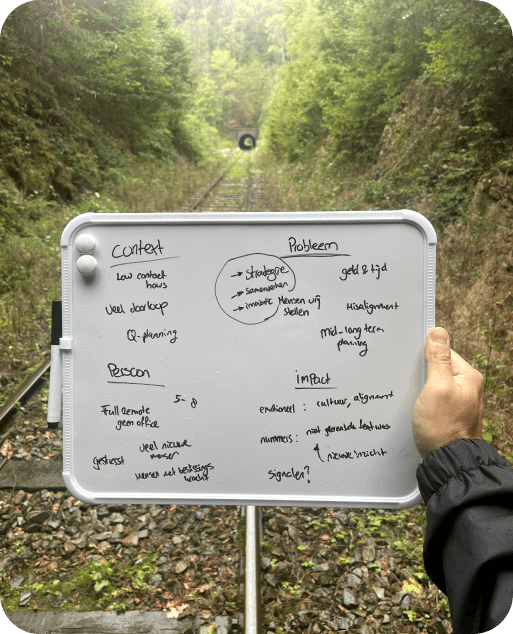 Context
Low contact
hours
Veel doorloop
Q-planning
Probleem
→ Strategie
→ samenwerken
→ innovatie
Mensen vrij
stellen
geld & tijd
Misalignment
Mid-long term
planning
Persoon
5-8
Full Remote
geen office
veel nieuwe
mensen
gestresst
Mensen met beslissings
kracht
impact
emotioneel : cultuur, alignment
nummers : niet gereleasde features
nieuw inzicht
signalen?